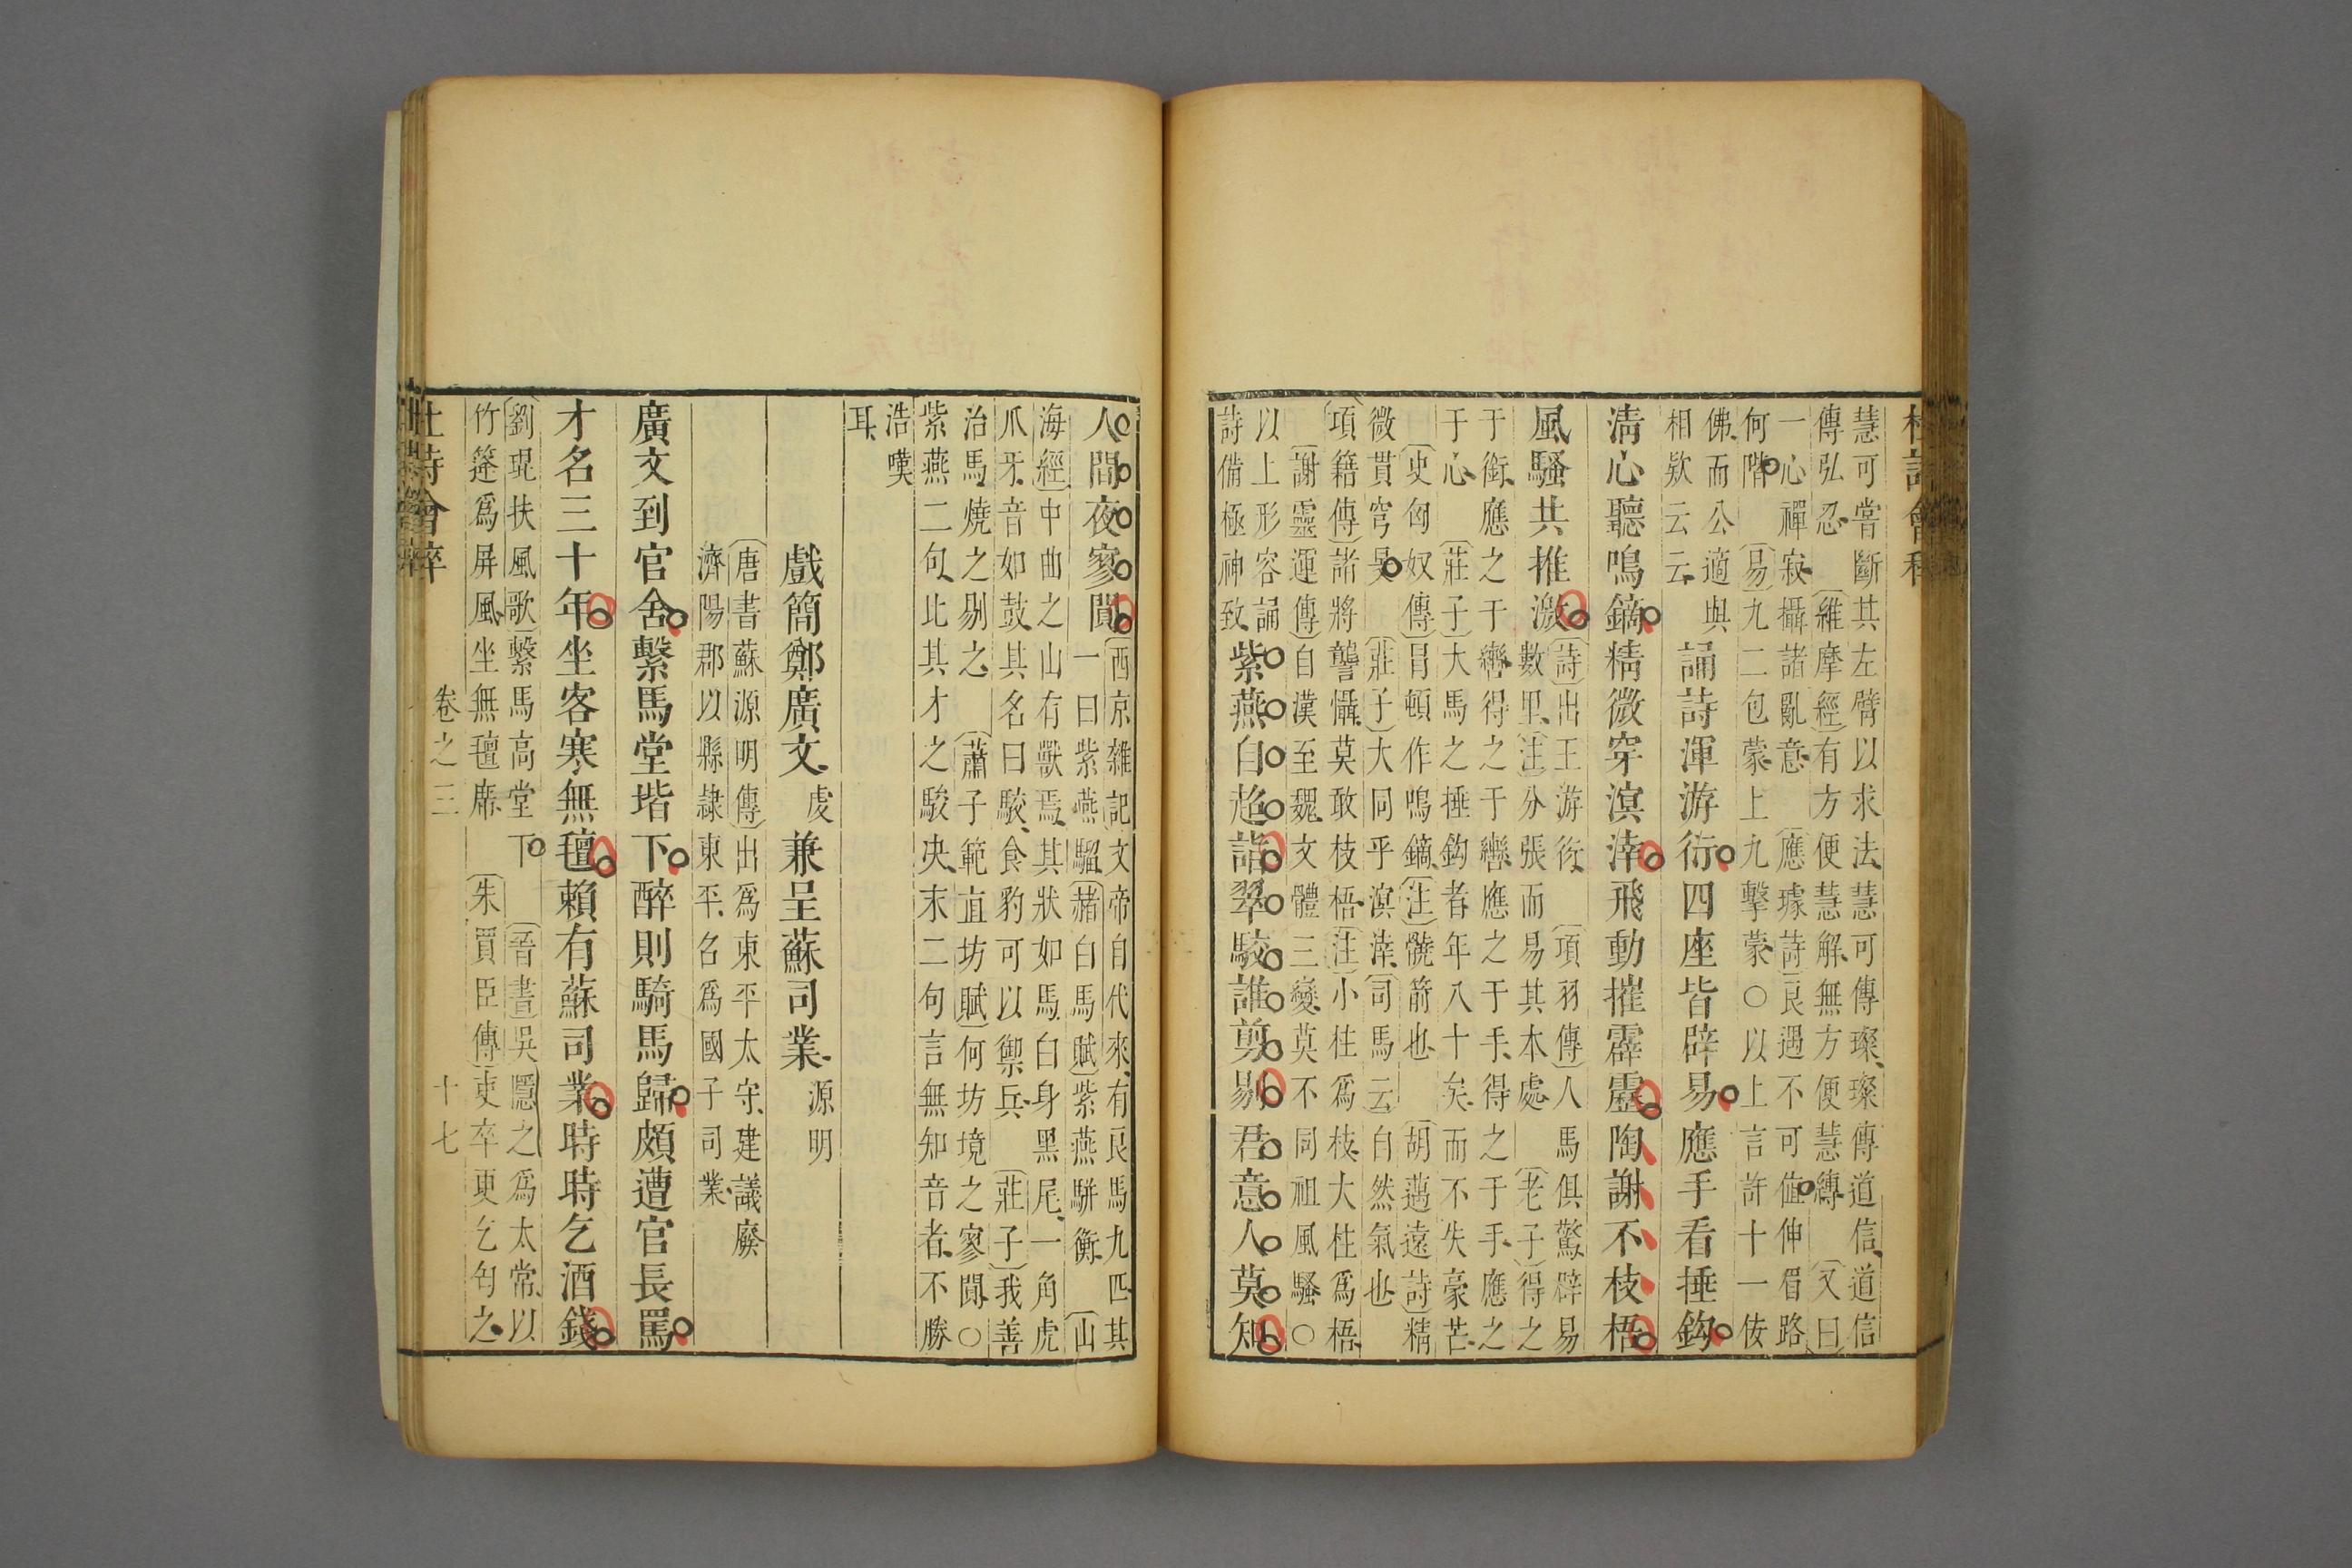 杜詩會稡
慧可嘗斷其左臂以求法慧可傳璨璨傳道信道信
傳弘忍〔維摩經〕有方便慧解無方便慧縛〔又曰〕
一心禪寂攝諸亂意〔應璩詩〕良遇不可值伸眉路
何階〔易〕九二包蒙上九擊蒙○以上言許十一依
佛而公適與
相欵云云
誦詩渾游衍四座皆辟易應手看捶鈎
清心聽鳴鏑精微穿溟涬飛動摧霹靂陶謝不枝梧
風騷共推激
〔詩〕出王游衍〔項羽傳〕人馬俱驚辟易
數里〔注〕分張而易其本處〔老子〕得之
于銜應之于轡得之于轡應之于手得之于手應之
于心〔莊子〕大馬之捶鈎者年八十矣而不失豪芒
〔吏匈奴傳〕冒頓作鳴鏑〔注〕髐箭也〔胡藹遠詩〕精
微貫穹旻〔莊子〕大同乎溟涬〔司馬云〕自然氣也
〔項籍傳〕諸將讋懾莫敢枝梧〔注〕小柱爲枝大柱爲梧
〔謝靈運傳〕自漢至魏文體三變莫不同祖風騷○
以上形容誦
詩備極神致
紫燕自超詣翠駮誰剪剔君意人莫知
人間夜寥閴
〔西京雜記〕文帝自代來有良馬九匹其
一曰紫燕騮〔赭白馬賦〕紫燕駢衡〔山
海經〕中曲之山有獸焉其狀如馬白身黑尾一角虎
爪牙音如鼓其名曰駮食豹可以禦兵〔莊子〕我善
治馬燒之剔之〔蕭子範直坊賦〕何坊境之寥閴○
紫燕二句比其才之駿夬末二句言無知音者不勝
浩嘆
耳
戲簡鄭廣文虔兼呈蘇司業源明
〔唐書蘇源明傳〕出爲東平太守建議廢
濟陽郡以縣隷東平召爲國子司業
廣文到官舍繫馬堂堦下醉則騎馬歸頗遭官長罵
才名三十年坐客寒無氊賴有蘇司業時時乞酒錢
〔劉琨扶風歌〕繫馬高堂下〔晉書〕吳隱之爲太常以
竹篷爲屏風坐無氊席〔朱買臣傳〕吏卒更乞匄之
杜詩會稡 卷之三 十七